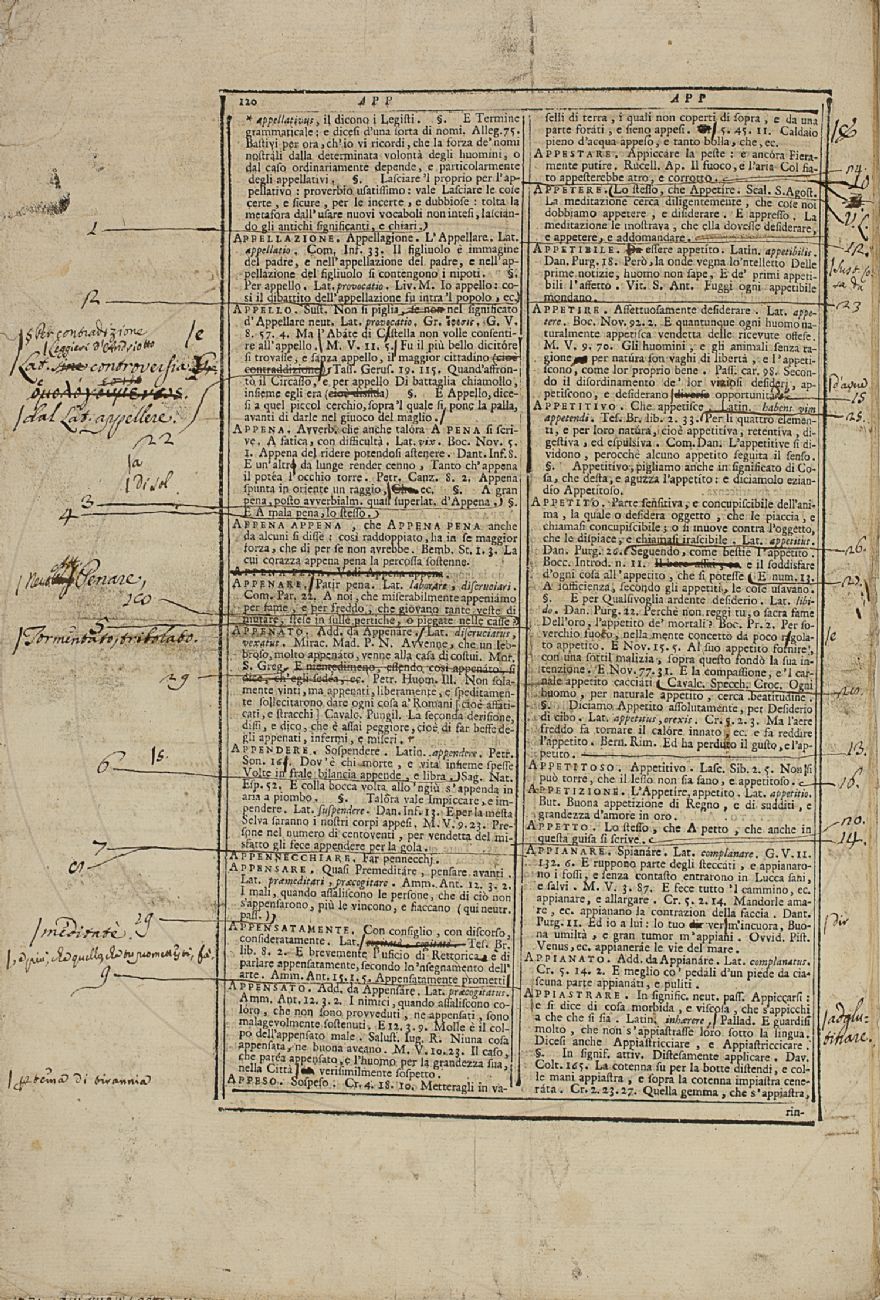 120 APP APP
* appellativus, il dicono i Legisti. §. E Termine
grammaticale; e dicesi d'una sorta di nomi. Alleg. 75.
Bastivi per ora, ch'io vi ricordi, che la forza de' nomi
nostrali dalla determinata volontà degli huomini, o
dal caso ordinariamente depende, e particolarmente
degli appellativi. §. Lasciare 'l proprio per l'ap-
pellativo: proverbio usatissimo: vale Lasciare le cose
certe, e sicure, per le incerte, e dubbiose: tolta la
metafora dall'usare nuovi vocaboli non intesi, lascian-
do gli antichi significanti, e chiari.
APPELLAZIONE. Appellagione. L'Appellare. Lat.
appellatio. Com. Inf. 33. Il figliuolo è immagine
del padre, e nell'appellazione del padre, e nell'ap-
pellazione del figliuolo si contengono i nipoti. §.
Per appello. Lat. provocatio. Liv. M. Io appello: co-
sì il dibattito dell'appellazione fu intra 'l popolo, ec.
APPELLO. Sust. Non si piglia, se non nel significato
d'Appellare neut. Lat. provocatio. Gr. G. V.
8. 57. 4. Ma l'Abate di Cestella non volle consenti-
re all'appello. M. V. 11. 5. Fu il più bello dicitore
si trovasse, e sanza appello, il maggior cittadino (cioè
contraddizione) Tass. Gerus. 19. 115. Quand'affron-
tò il Circasso, e per appello Di battaglia chiamollo,
insieme egli era (cioè disfida) §. E Appello, dice-
si a quel piccol cerchio, sopra 'l quale si pone la palla,
avanti di darle nel giuoco del maglio.
APPENA. Avverb. che anche talora A PENA si scri-
ve. A fatica, con difficultà. Lat. vix. Boc. Nov. 5.
1. Appena del ridere potendosi astenere. Dant. Inf. 8.
E un'altro da lunge render cenno, Tanto ch'appena
il potea l'occhio torre. Petr. Canz. 8. 2. Appena
spunta in oriente un raggio, Che ec. §. A gran
pena, posto avverbialm. quasi superlat. d'Appena. §.
E A mala pena, lo stesso.
APPENA APPENA, che APPENA PENA anche
da alcuni si disse: così raddoppiato, ha in se maggior
forza, che di per se non avrebbe. Bemb. St. 1. 3. La
cui corazza appena pena la percossa sostenne.
APPENA PENA. Vedi Appena appena.
APPENARE. Patir pena. Lat. laborare, discruciari.
Com. Par. 22. A noi, che miserabilmente appeniamo
per fame, e per freddo, che giovano tante veste di
mutare, stese in sulle pertiche, o piegate nelle casse?
APPENATO. Add. da Appenare. Lat. discruciatus,
vexatus. Mirac. Mad. P. N. Avvenne, che un leb-
broso, molto appenato, venne alla casa di costui. Mor.
S. Greg. E nientedimeno, essendo così appenato, si
dice, ch'egli sedea, ec. Petr. Huom. Ill. Non sola-
mente vinti, ma appenati, liberamente, e speditamen-
te sollecitarono dare ogni cosa a' Romani [cioè affati-
cati, e stracchi] Cavalc. Pungil. La seconda derisione,
dissi, e dico, che è assai peggiore, cioè di far beffe de-
gli appenati, infermi, e miseri.
APPENDERE. Sospendere. Latin. appendere. Petr.
Son. 16. Dov'è chi morte, e vita insieme spesse
Volte in frale bilancia appende, e libra. Sag. Nat.
Esp. 52. E colla bocca volta allo 'ngiù s'appenda in
aria a piombo. §. Talora vale Impiccare, e im-
pendere. Lat. suspendere. Dan. Inf. 13. E per la mesta
Selva saranno i nostri corpi appesi. M. V. 9. 23. Pre-
sone nel numero di centoventi, per vendetta del mi-
sfatto gli fece appendere per la gola.
APPENNECCHIARE. Far pennecchj.
APPENSARE. Quasi Premeditare, pensare avanti.
Lat. præmeditari, præcogitare. Amm. Ant. 12. 3. 2.
I mali, quando assaliscono le persone, che di ciò non
s'appensarono, più le vincono, e fiaccano (qui neutr.
pass.)
APPENSATAMENTE. Con consiglio, con discorso,
consideratamente. Lat. Tes. Br.
lib. 8. 2. E brevemente l'uficio di Rettorica, e di
parlare appensatamente, secondo lo'nsegnamento dell'
arte. Amm. Ant. 15. 1. 5. Appensatamente prometti
APPENSATO. Add. da Appensare. Lat. præcogitatus.
Amm. Ant. 12. 3. 2. I nimici, quando assaliscono co-
loro, che non sono provveduti, ne appensati, sono
malagevolmente sostenuti. E 12. 3. 9. Molle è il col-
po dell'appensato male. Salust. Iug. R. Niuna cosa
appensata, ne buona aveano. M. V. 10. 23. Il caso,
che parea appensato, e l'huomo per la grandezza sua,
nella Città verisimilmente sospetto.
APPESO. Sospeso. Cr. 4. 18. 10. Metteragli in va-
selli di terra, i quali non coperti di sopra, e da una
parte forati, e sieno appesi. 5. 45. 11. Caldaio
pieno d'acqua appeso, e tanto bolla, che, ec.
APPESTARE. Appiccare la peste: e ancora Fiera-
mente putire. Rucell. Ap. Il fuoco, e l'aria Col fia-
to appesterebbe atro, e corrotto.
APPETERE. Lo stesso, che Appetire. Scal. S. Agost.
La meditazione cerca diligentemente, che cose noi
dobbiamo appetere, e disiderare. E appresso. La
meditazione le mostrava, che ella dovesse desiderare,
e appetere, e addomandare.
APPETIBILE. Da essere appetito. Latin. appetibilis.
Dan. Purg. 18. Però, la onde vegna lo 'ntelletto Delle
prime notizie, huomo non sape, E de' primi appeti-
bili l'affetto. Vit. S. Ant. Fuggi ogni appetibile
mondano.
APPETIRE. Affettuosamente desiderare. Lat. appe-
tere. Boc. Nov. 92. 2. E quantunque ogni huomo na-
turalmente appetisca vendetta delle ricevute offese.
M. V. 9. 70. Gli huomini, e gli animali senza ra-
gione per natura son vaghi di libertà, e l'appeti-
scono, come lor proprio bene. Pass. car. 98. Secon-
do il disordinamento de' lor viziosi desiderj, ap-
petiscono, e desiderano diverse opportunità.
APPETITIVO. Che appetisce. Latin. habens vim
appetendi. Tes. Br. lib. 2. 33. Per li quattro elemen-
ti, e per loro natura, cioè appetitiva, retentiva, di-
gestiva, ed espulsiva. Com. Dan. L'appetitive si di-
vidono, perocchè alcuno appetito seguita il senso.
§. Appetitivo, pigliamo anche in significato di Co-
sa, che desta, e aguzza l'appetito: e diciamolo ezian-
dio Appetitoso.
APPETITO. Parte sensitiva, e concupiscibile dell'ani-
ma, la quale o desidera oggetto, che le piaccia, e
chiamasi concupiscibile; o si muove contra l'oggetto,
che le dispiace, e chiamasi irascibile. Lat. appetitus.
Dan. Purg. 26. Seguendo, come bestie l'appetito.
Bocc. Introd. n. 11. e il soddisfare
d'ogni cosa all'appetito, che si potesse. E num. 13.
A sofficienza, secondo gli appetiti, le cose usavano.
§. E per Qualsivoglia ardente desiderio. Lat. libi-
do. Dan. Purg. 22. Perchè non reggi tu, o sacra fame
Dell'oro, l'appetito de' mortali? Boc. Pr. 2. Per so-
verchio fuoco, nella mente concetto da poco regola-
to appetito. E Nov. 15. 5. Al suo appetito fornire,
con una sottil malizia, sopra questo fondò la sua in-
tenzione. E Nov. 77. 31. E la compassione, e 'l car-
nale appetito cacciati. Cavalc. Specch. Croc. Ogni
huomo, per naturale appetito, cerca beatitudine.
§. Diciamo Appetito assolutamente, per Desiderio
di cibo. Lat. appetitus, orexis. Cr. 5. 2. 3. Ma l'aere
freddo fa tornare il calore innato, ec. e fa reddire
l'appetito. Bern. Rim. Ed ha perduto il gusto, e l'ap-
petito.
APPETITOSO. Appetitivo. Lasc. Sib. 2. 5. Non si
può torre, che il lesso non sia sano, e appetitoso.
APPETIZIONE. L'Appetire, appetito. Lat. appetitio.
But. Buona appetizione di Regno, e di sudditi, e
grandezza d'amore in oro.
APPETTO. Lo stesso, che A petto, che anche in
questa guisa si scrive.
APPIANARE. Spianare. Lat. complanare. G. V. 11.
132. 6. E ruppono parte degli steccati, e appianaro-
no i fossi, e senza contasto entrarono in Lucca sani,
e salvi. M. V. 3. 87. E fece tutto 'l cammino, ec.
appianare, e allargare. Cr. 5. 2. 14. Mandorle ama-
re, ec. appianano la contrazion della faccia. Dant.
Purg. 11. Ed io a lui: lo tuo ver m'incuora, Buo-
na umiltà, e gran tumor m'appiani. Ovvid. Pist.
Venus, ec. appianeràe le vie del mare.
APPIANATO. Add. da Appianare. Lat. complanatus.
Cr. 5. 14. 2. E meglio co' pedali d'un piede da cia-
scuna parte appianati, e puliti.
APPIASTRARE. In signific. neut. pass. Appiccarsi:
e si dice di cosa morbida, e viscosa, che s'appicchi
a che che si sia. Latin. inhærere. Pallad. E guardisi
molto, che non s'appiastrasse loro sotto la lingua.
Dicesi anche Appiastricciare, e Appiastriccicare.
§. In signif. attiv. Distesamente applicare. Dav.
Colt. 165. La cotenna su per la botte distendi, e col-
le mani appiastra, e sopra la cotenna impiastra cene-
rata. Cr. 2. 23. 27. Quella gemma, che s'appiastra,
rin-
1
12
s Per contradizione
e
Lat. controversia
dal Lat. appellere.
22
a
Di sol
3
4
Penare,
Tormentato, tribolato.
29
6
s.
7
meditatè.
29
9
tema di tirannia
12
23
15
25.
26.
13.
16.
14.
dir
adglu-
tinare.